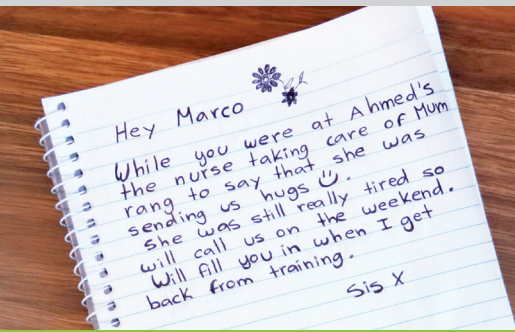 Hey Marco
While you were at Ahmed's
the nurse taking care of Mum
rang to say that she was
sending us hugs.
She was still really tired so
will call us on the weekend.
Will fill you in when I get
back from training.
Sis X